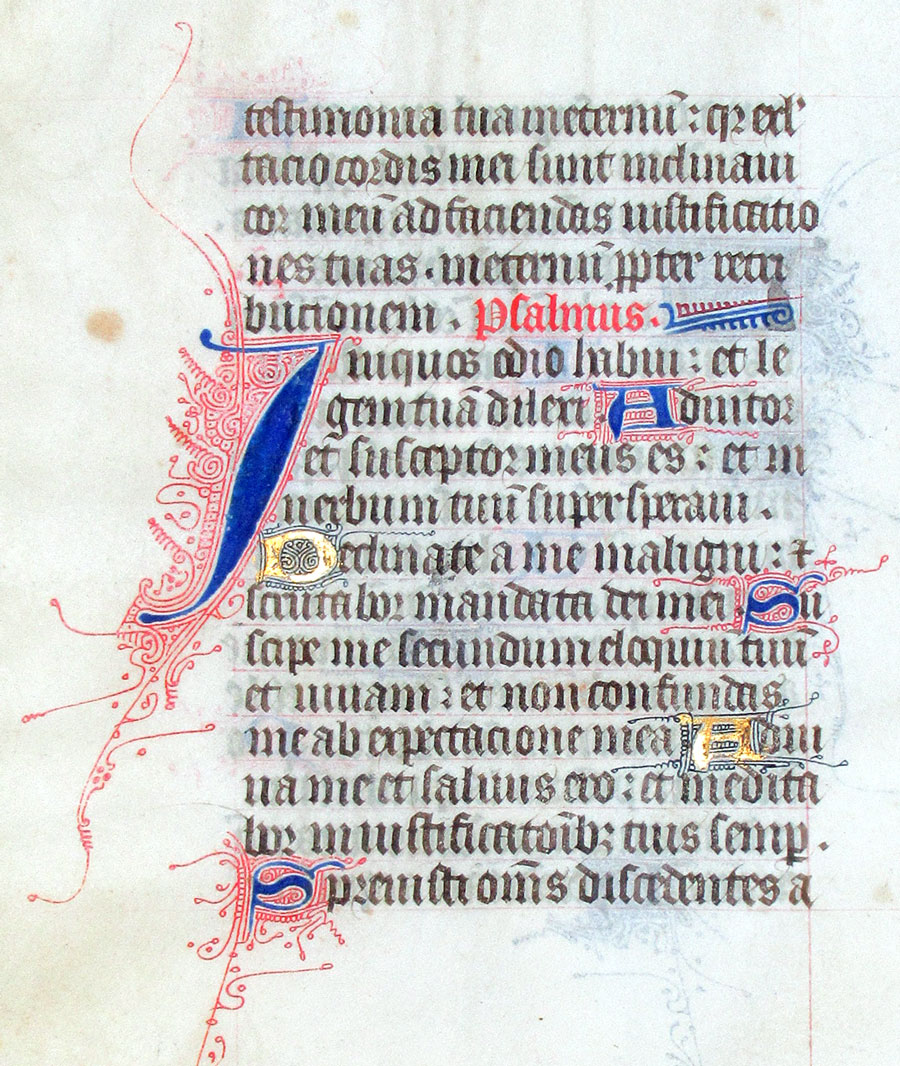 testimonia tua ineternū : qꝛ exl'
tacio cordis mei sunt inclinaui
cor meū ad faciendas iustificatio
nes tuas . ineternū ꝓpter retri
bucionem . Psalmus .
Iniquos odio habui : et le
gem tuā dilexi Adiutor
et susceptor meus es : et in
uerbum tuū supersperaui .
Declinate a me maligni : ⁊
scrutabor mandata dei mei Su
scipe me secundum eloquiū tuū
et uiuam : et non confundas
me ab expectacione mea Adiu
ua me et saluus ero : et medita
bor in iustificatōībꝫ tuis semꝑ .
Spreuisti om̄s discedentes a